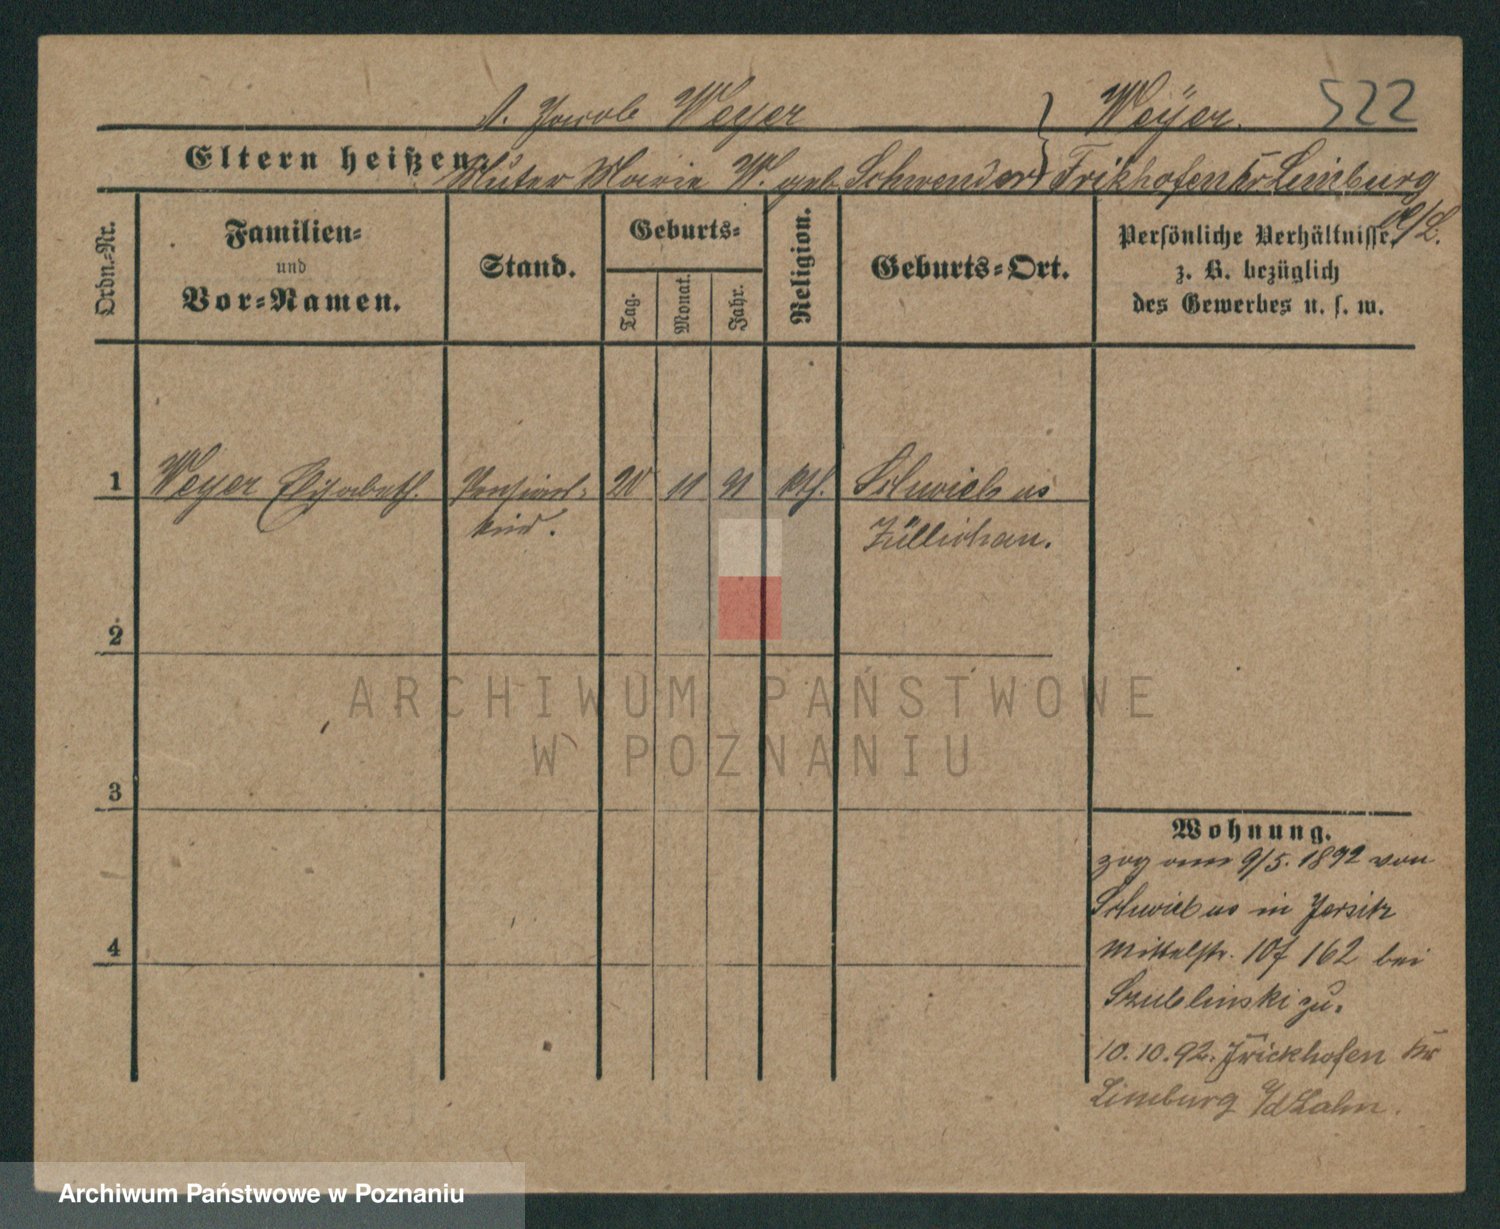 Jacob Weyer } Weÿer. 522
Eltern heißen: Muter Marie W. geb. Schwender Frikhofen Kr Limburg
a/L.
Ordn.-Nr.
Familien-
und
Vor-Namen.
Stand.
Geburts-
Tag.
Monat.
Jahr.
Religion.
Geburts-Ort.
Persönliche Verhältnisse,
z. B. bezüglich
des Gewerbes u. s. w.
1 Weyer Elisabeth. Pensions- 20 11 91 kth. Schwiebus
kind. Züllichau.
2
3
4
Wohnung.
zog am 9/5. 1892 von
Schwiebus in Jersitz
Mittelstr. 107 162 bei
Szublinski zu.
10.10.92. Frickhofen Kr
Limburg a/d Lahn.
ARCHIWUM PAŃSTWOWE
W POZNANIU
Archiwum Państwowe w Poznaniu